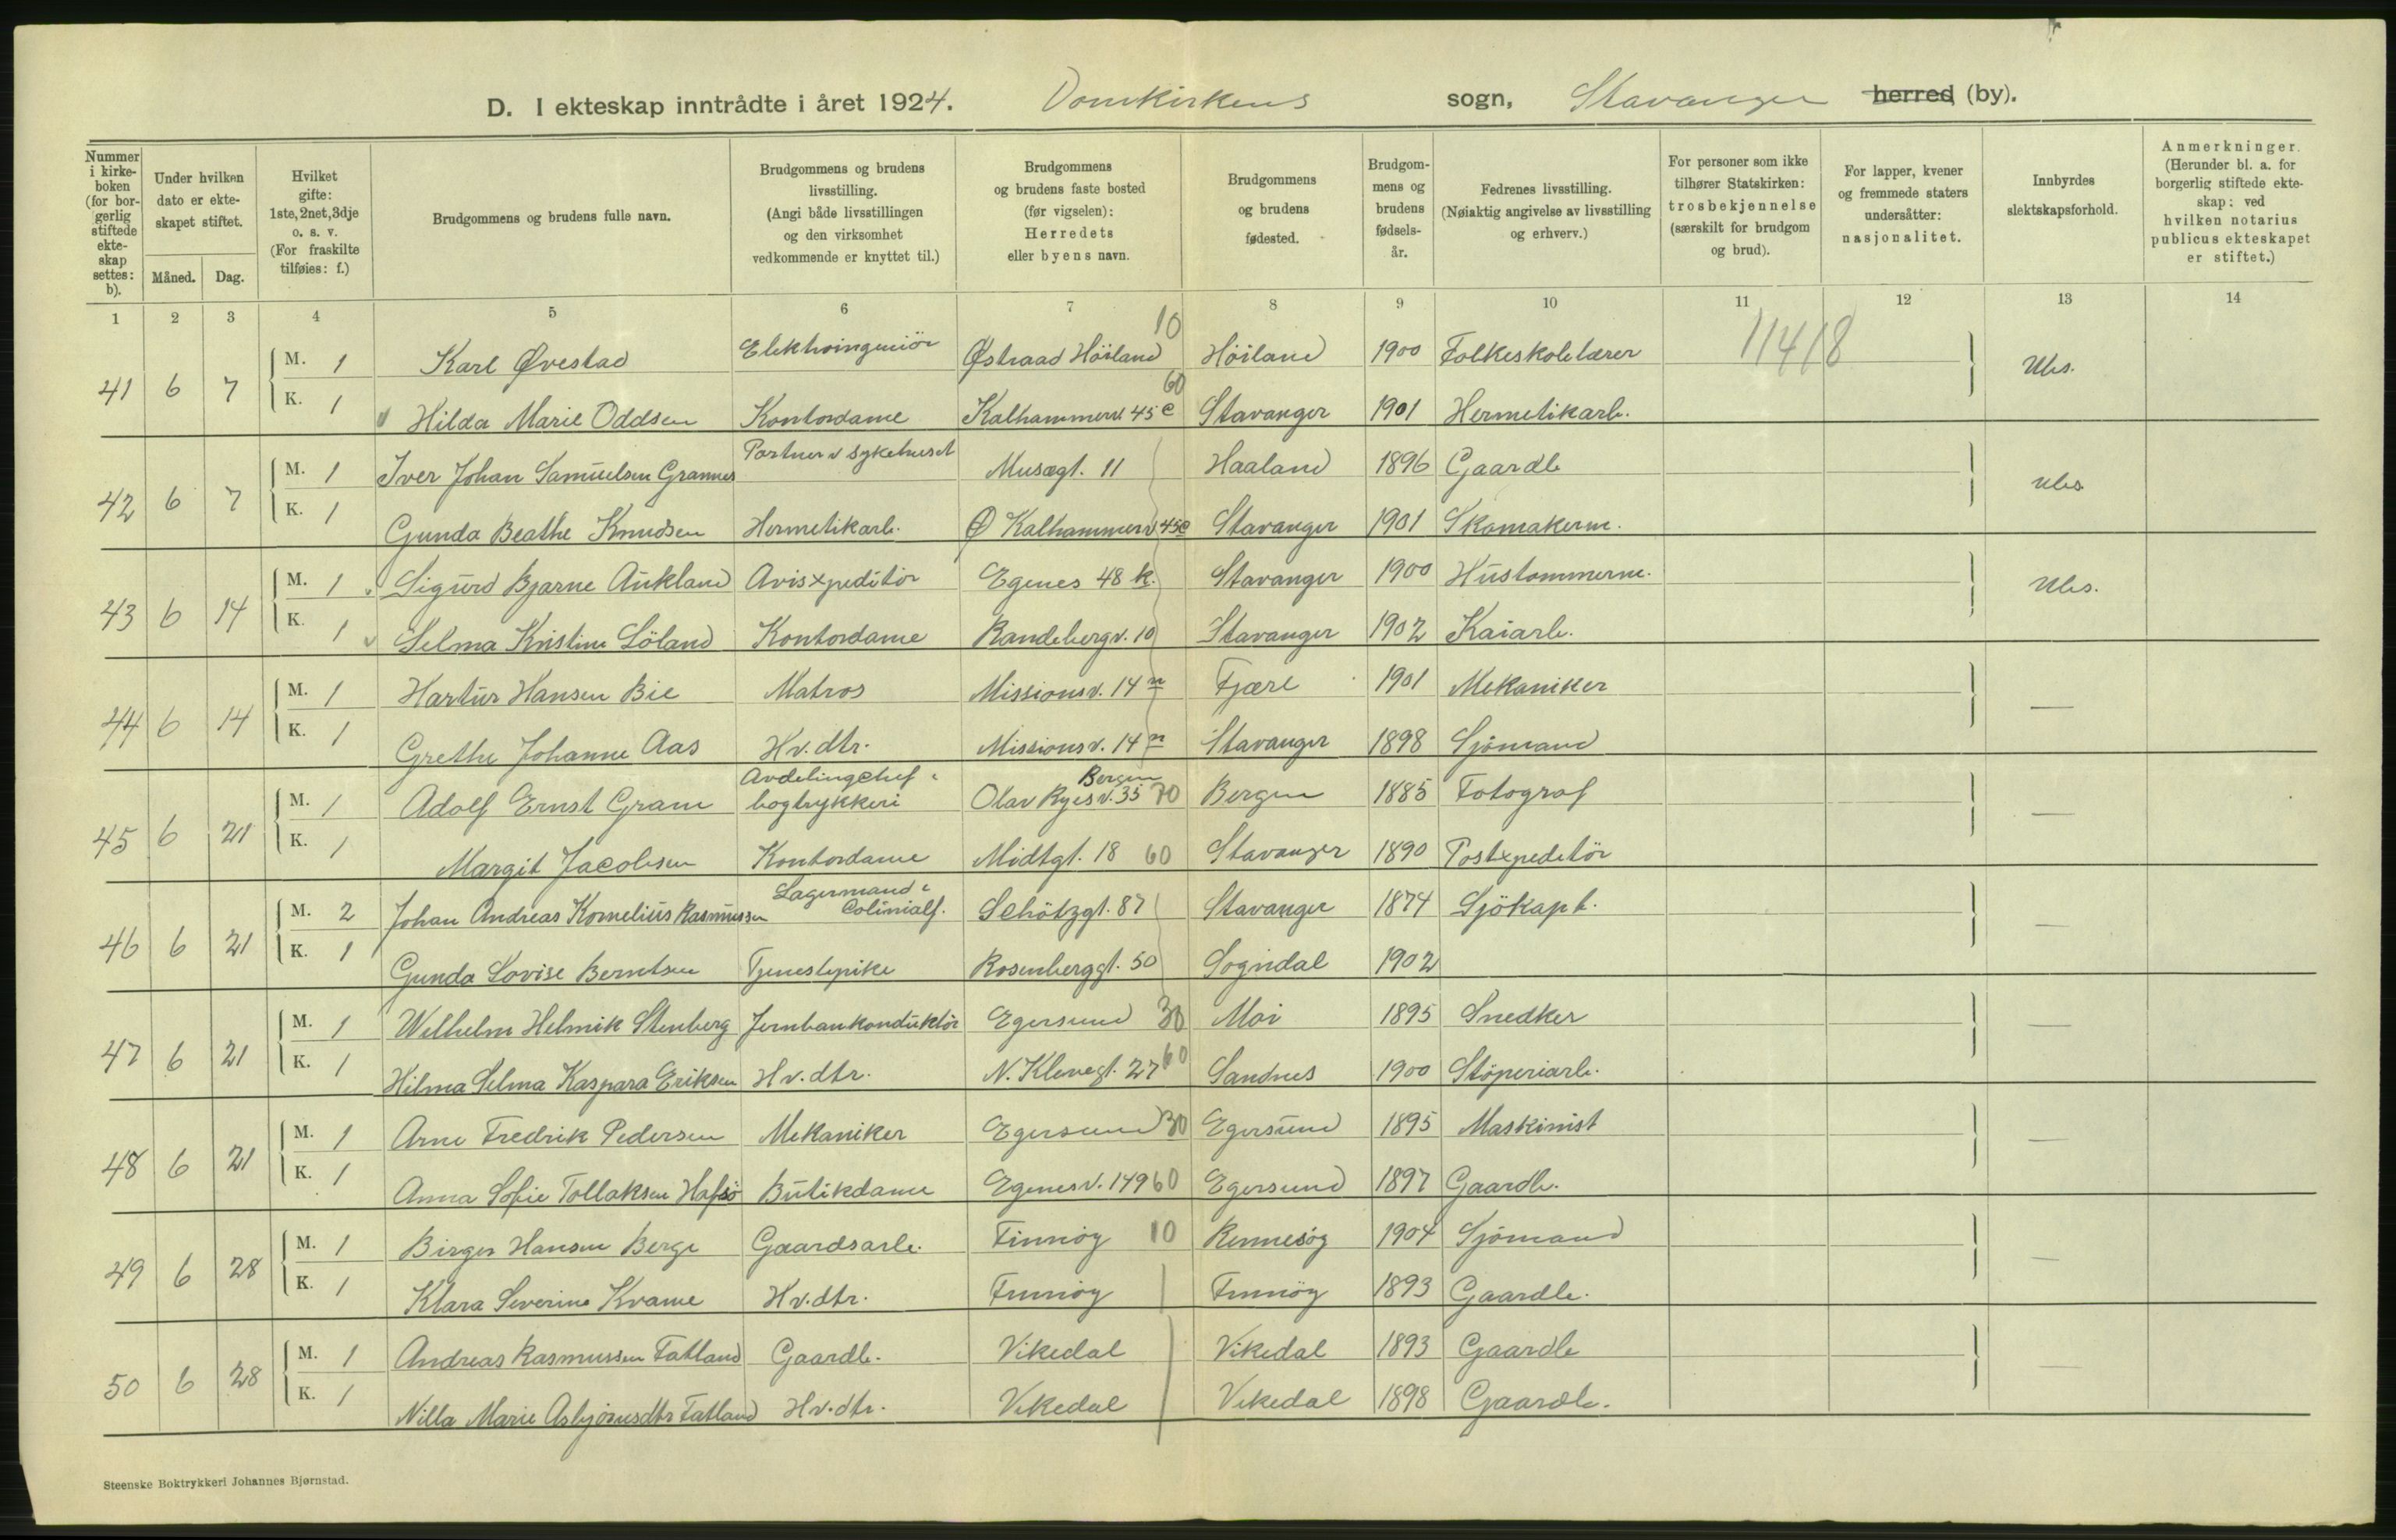 D. I ekteskap inntrådte i året 1924. Domkirkens sogn, Stavanger herred (by).
Nummer i kirkeboken (for borgerlig stiftede ekteskap settes: b).
Under hvilken dato er ekteskapet stiftet.
Måned. Dag.
Hvilket gifte: 1ste, 2net, 3dje o. s. v. (For fraskilte tilføies: f.)
Brudgommens og brudens fulle navn.
Brudgommens og brudens livsstilling. (Angi både livsstillingen og den virksomhet vedkommende er knyttet til.)
Brudgommens og brudens faste bosted (før vigselen): Herredets eller byens navn.
Brudgommens og brudens fødested.
Brudgommens og brudens fødselsår.
Fedrenes livsstilling. (Nøiaktig angivelse av livsstilling og erhverv.)
For personer som ikke tilhører Statskirken: trosbekjennelse (særskilt for brudgom og brud).
For lapper, kvener og fremmede staters undersåtter: nasjonalitet.
Innbyrdes slektskapsforhold.
Anmerkninger. (Herunder bl. a. for borgerlig stiftede ekteskap: ved hvilken notarius publicus ekteskapet er stiftet.)
1 2 3 4 5 6 7 8 9 10 11 12 13 14
41 6 7 M. 1 Karl Øvestad Elektroingeniör Østraad Höiland 10 Höiland 1900 Folkeskolelærer 11418 Ubs.
K. 1 Hilda Marie Oddsen Kontordame Kalhammerv 45 c 60 Stavanger 1901 Hermetikarb.
42 6 7 M. 1 Iver Johan Samuelsen Grannes Portner v sykehuset Musægt. 11 Haaland 1896 Gaardb Ubs
K. 1 Gunda Beathe Knudsen Hermetikarb. Ø Kalhammerv 45c Stavanger 1901 Skomakerm.
43 6 14 M. 1 Sigurd Bjarne Aukland Avisxpeditör Egenes 48 k. Stavanger 1900 Hustømmerm. Ubs.
K. 1 Selma Kristine Söland Kontordame Randebergv. 10 Stavanger 1902 Kaiarb.
44 6 14 M. 1 Hartur Hansen Bie Matros Missionsv. 14 n Fjære 1901 Mekaniker —
K. 1 Grethe Johanne Aas Hv. dtr. Missionsv. 14 n Stavanger 1898 Sjömand
45 6 21 M. 1 Adolf Ernst Gram Avdelingchef i bogtrykkeri Bergen Olav Ryesv. 35 70 Bergen 1885 Fotograf —
K. 1 Margit Jacobsen Kontordame Midtgt. 18 60 Stavanger 1890 Postxpeditör
46 6 21 M. 2 Johan Andreas Kornelius Rasmussen Lagermand i Colonialf. Schötzgt. 87 Stavanger 1874 Sjökapt. —
K. 1 Gunda Lovise Berntsen Tjenestepike Rosenberggt. 50 Sogndal 1902
47 6 21 M. 1 Wilhelm Helmik Stenberg Jernbankonduktör Egersund 30 Moi 1895 Snedker —
K. 1 Hilma Selma Kaspara Eriksen Hv. dtr. N. Klevegt. 27 60 Sandnes 1900 Stöperiarb.
48 6 21 M. 1 Arne Fredrik Pedersen Mekaniker Egersund 30 Egersund 1895 Maskinist —
K. 1 Anna Sofie Tollaksen Hafsö Butikdame Egenesv. 149 60 Egersund 1897 Gaardb.
49 6 28 M. 1 Birger Hansen Berge Gaardsarb. Finnöy 10 Rennesöy 1904 Sjömand —
K. 1 Klara Severine Kvame Hv. dtr. Finnöy Finnöy 1893 Gaardb.
50 6 28 M. 1 Andreas Rasmussen Fatland Gaardb. Vikedal Vikedal 1893 Gaardb —
K. 1 Nilla Marie Asbjörnsdtr Fatland Hv. dtr. Vikedal Vikedal 1898 Gaardb.
Steenske Boktrykkeri Johannes Bjørnstad.